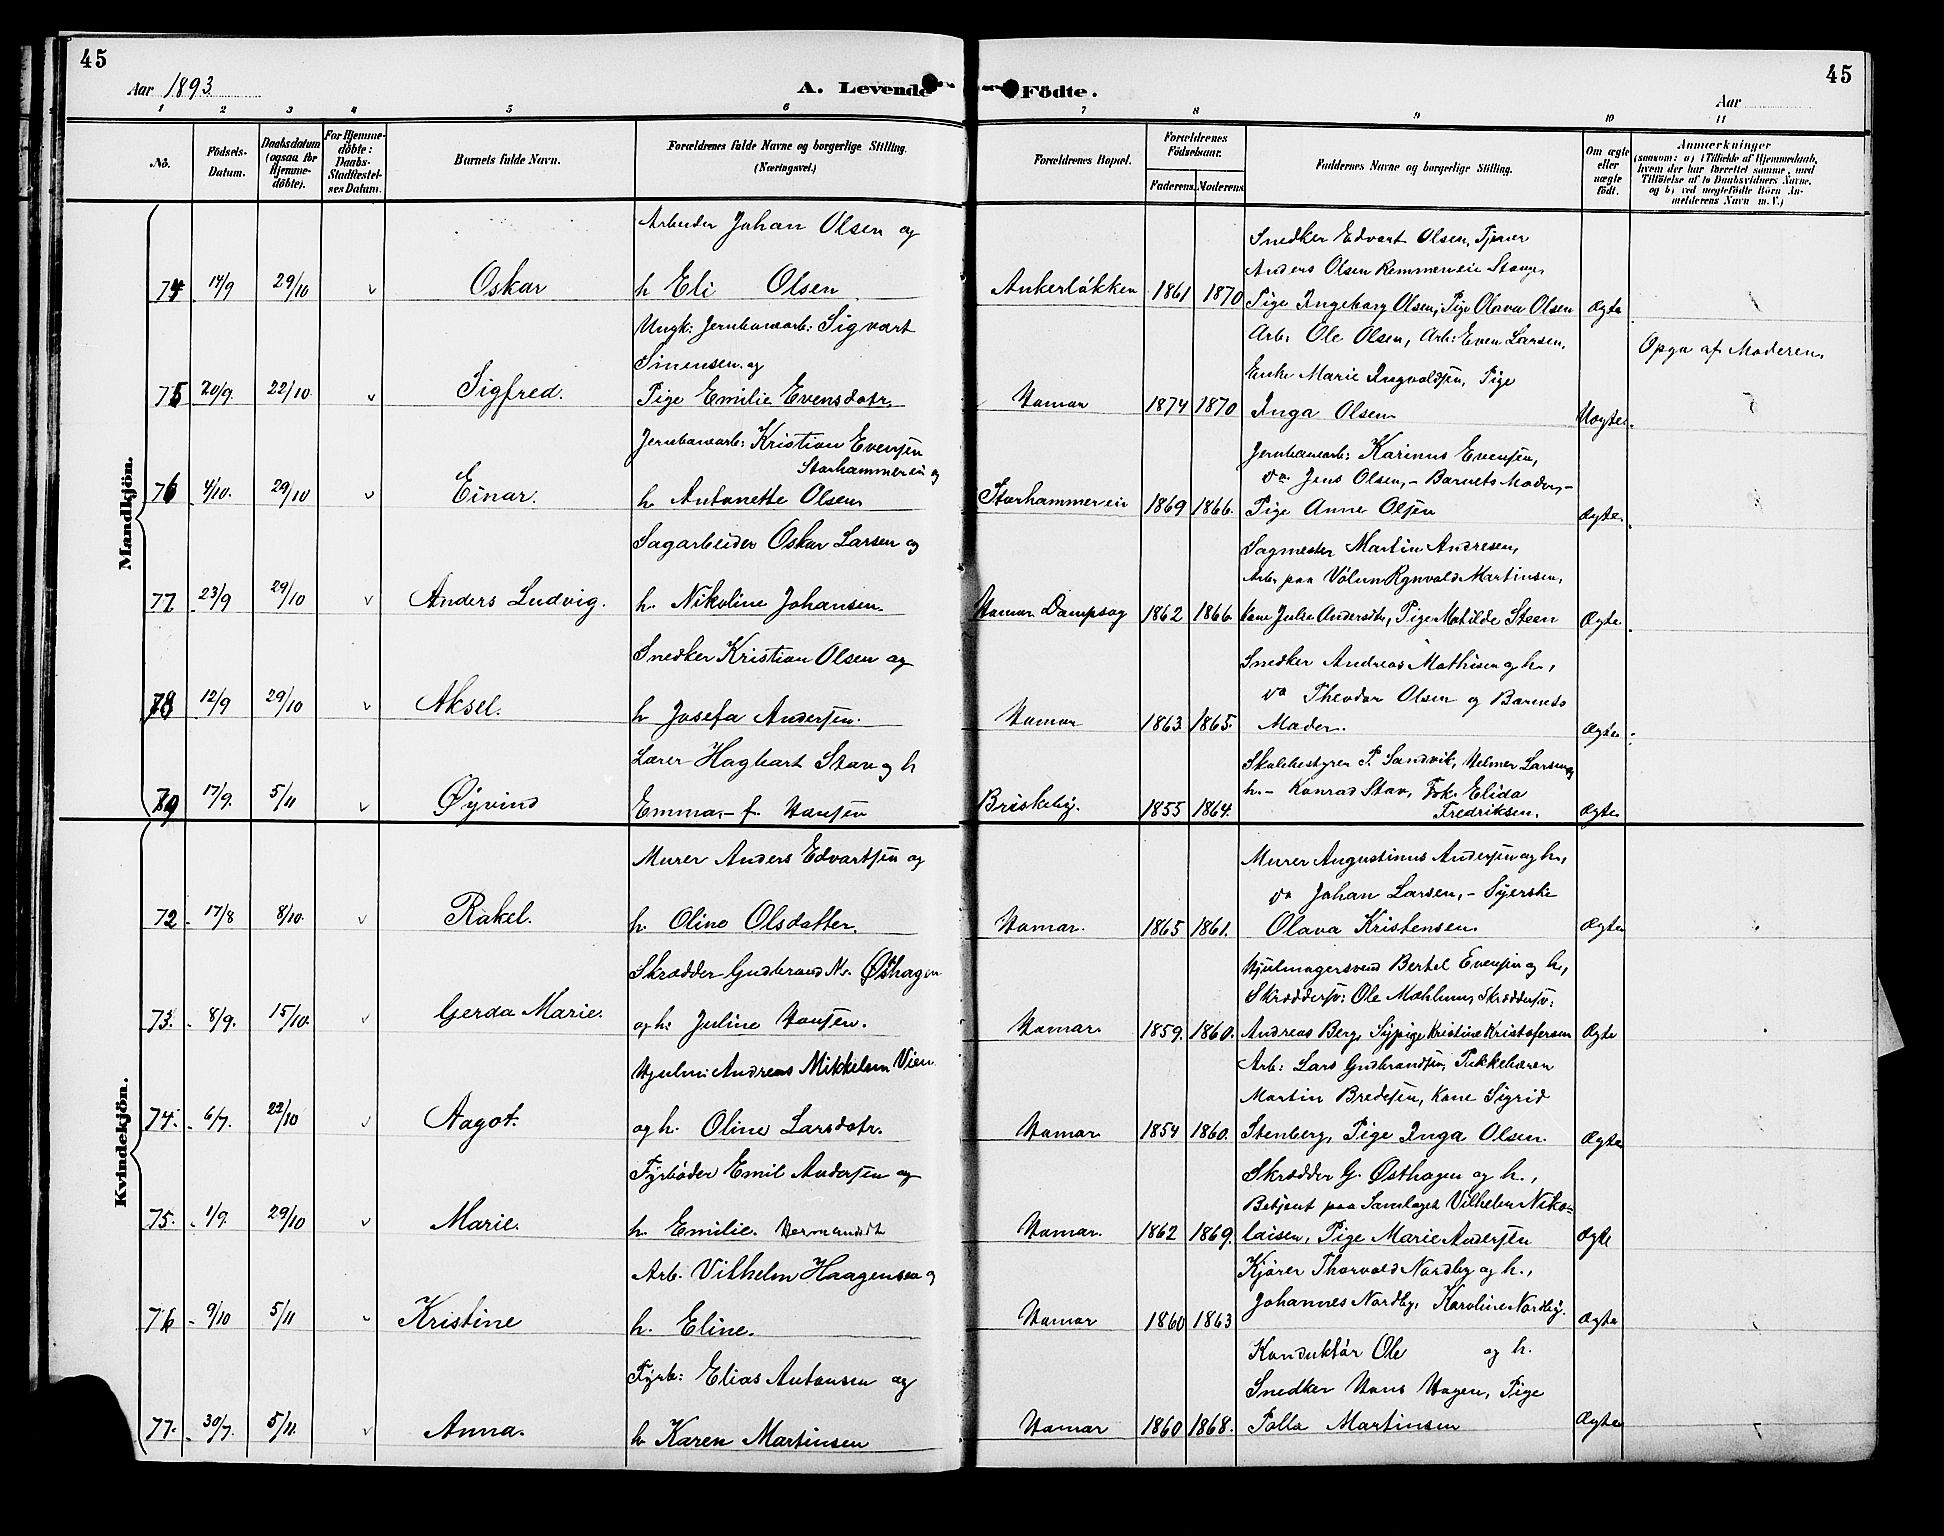 45
Aar 1893.
A. Levende Födte.
45
Aar
1 2 3 4 5 6 7 8 9 10 11
No.
Födsels-Datum.
Daabsdatum (ogsaa for Hjemme-döbte).
For Hjemme-döbte: Daabs-Stadfæstel-ses Datum.
Barnets fulde Navn.
Forældrenes fulde Navne og borgerlige Stilling. (Næringsvei.)
Forældrenes Bopæl.
Forældrenes Födselsaar.
Faderens. Moderens.
Faddernes Navne og borgerlige Stilling.
Om ægte eller uægte født.
Anmærkninger
(saasom: a) i Tilfælde af Hjemmedaab, hvem der har forrettet samme, med Tilföielse af to Daabsvidners Navne, og b) ved uægtefödte Börn An-melderens Navn m. V.)
Mandkjön.
74 14/9 29/10 v Oskar
Arbeider Johan Olsen og
h Eli Olsen
Ankerløkken 1861 1870
Snedker Edvart Olsen, Tjener
Anders Olsen Remmereie Stange,
Pige Ingeborg Olsen, Pige Olava Olsen
Ægte
75 20/9. 22/10. v Sigfred.
Ungk: Jernbanearb: Sigvart
Simensen og
Pige Emilie Evensdatr.
Hamar 1874 1870
Arb: Ole Olsen, Arb: Even Larsen,
Enke Marie Ingvoldsen, Pige
Inga Olsen
Uægte.
Opga af Moderen
76 4/10. 29/10 v Einar.
Jernbanearb: Kristian Evensen
Storhammereie og
h. Antonette Olsen
Storhammereie 1869 1866.
Jernbanearb: Karinus Evensen,
do Jens Olsen, - Barnets Moder, -
Pige Anne Olsen
Ægte
77 23/9 29/10 v Anders Ludvig.
Sagarbeider Oskar Larsen og
h. Nikoline Johansen.
Hamar Dampsag 1862 1866.
Sagmester Martin Andresen,
Arb. paa Vølun Rynvold Martinsen,
kone Julie Andersdtr, Pige Matilde Steen
Ægte
78 12/9 29/10 v Aksel.
Snedker Kristian Olsen og
h Josefa Andersen.
Hamar 1863 1865.
Snedker Andreas Mathisen og h.,
do Theodor Olsen og Barnets
Moder.
Ægte
79 17/9. 5/11 v Øyvind
Lærer Hagbart Stav og h
Emma, - f. Hansen
Briskeby. 1855 1864.
Skolebestyrer P. Sandvik, Helmer Larsen og
h. - Konrad Stav, Frk. Elida
Fredriksen.
Ægte
Kvindekjön.
72 17/8 8/10. v Rakel.
Murer Anders Edvartsen og
h. Oline Olsdatter.
Hamar. 1865 1861.
Murer Augustinus Andersen og h.,
do Johan Larsen, - Syerske
Olava Kristensen.
Ægte
73. 8/9. 15/10. v Gerda Marie.
Skrædder Gudbrand N. Østhagen
og h: Juline Hansen.
Hamar. 1859. 1860.
Hjulmagersvend Bertel Evensen og h.,
Skræddersv: Ole Mæhlum, Skræddersv:
Andreas Berg, Sypige Kristine Kristofersen
Ægte
74. 6/7. 22/10 v Aagot.
Hjulm: Andreas Mikkelsen Vien
og h. Oline Larsdatr.
Hamar. 1854 1860.
Arb: Lars Gudbrandsen, Pukkebæren
Martin Bredesen, Kone Sigrid
Stenberg, Pige Inga Olsen.
Ægte
75. 1/9. 29/10 v Marie.
Fyrbøder Emil Andersen og
h. Emilie Hermansdt
Hamar. 1862 1869.
Skrædder G. Østhagen og h.,
Betjent paa Samlaget Vilhelm Niko-
laisen, Pige Marie Andersen
Ægte
76 9/10 5/11 v Kristine
Arb. Vilhelm Haagensen og
h. Eline.
Hamar 1860 1863
Kjører Thorvald Nordby og h.,
Johannes Nordby, Karoline Nordby.
Ægte
77. 30/7. 5/11. v Anna.
Fyrb: Elias Antonsen og
h Karen Martinsen
Hamar 1860 1868.
Konduktør Ole og h.
Snedker Hans Hagen, Pige
Palla Martinsen
Ægte